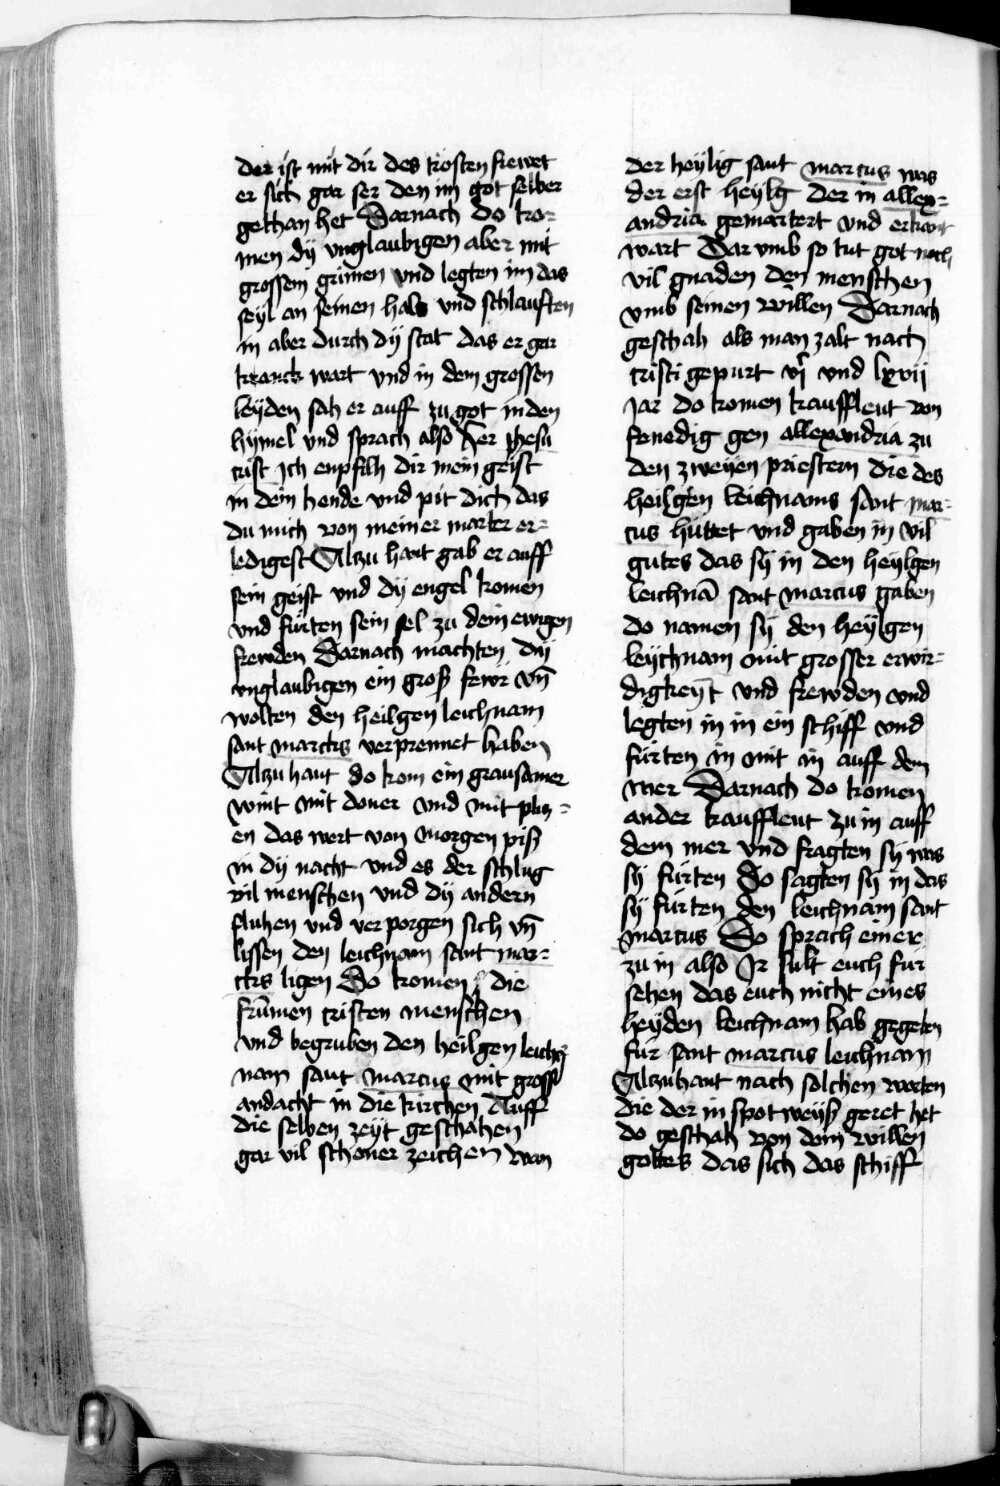 der ist mit dir des trosten frewet
er sich gar ser den im got selber
gethan het Darnach do kro-
men dÿ vnglaubigen aber mit
grossem grimen vnd legten im das
seÿl an seinen hals vnd schlauften
in aber durch dÿ stat das er gar
kranck wart vnd in dem grossen
leÿden sah er auff zu got in den
hÿmel vnd sprach also Her jhesu
crist Ich enpfilh dir mein geist
in dein hende vnd pit dich das
du mich von meiner marter er-
ledigest Alzu hant gab er auff
sein geist vnd dÿ engel komen
vnd fürten sein sel zu dem ewigen
frewden Darnach machten dÿ
vnglaubigen ein groß fewr vn̄
wolten den heilgen leichnam
sant marcus verprennet haben
Alzu hant do kom ein grausamer
wint mit doner vnd mit pliz-
en das wert von morgen piß
in dÿ nacht vnd es der schlug
vil menschen vnd dÿ andern
fluhen vnd verporgen sich vn̄
lissen den leichnam sant mar-
cus ligen Do komen die
frūmen cristen menschen
vnd begruben den heilgen leich
nam sant marcus mit grosser
andacht in die kirchen Auff
die selben zeÿt geschahen
gar vil schoner zeichen wan
der heÿlig sant marcus was
der erst heÿlg der in allex-
andria gemartert vnd erkant
wart Dar vmb so tut got noch
vil gnaden den menschen
vmb seinen willen Darnach
geschah als man zalt nach
cristi gepurt vj vnd lxvij
Jar do komen kauffleut von
fenedig gen allexandria zu
den zweÿen priestern die des
heilgen leichnams sant mar-
cus hüttet vnd gaben in vil
gutes das sÿ in den heÿlgen
leichnā sant marcus gaben
do namen sÿ den heÿlgen
leÿchnam mit grosser erwir-
digkeÿt vnd frewden vnd
legten in in ein schiff vnd
fürten in mit in auff dem
mer Darnach do komen
ander kauffleut zu in auff
dem mer vnd fragten sÿ was
sÿ fürten Do sagten sÿ in das
sÿ fürten den leichnam sant
marcus Do sprach einer
zu in also Ir sult euch für
sehen das euch nicht eines
heÿden leichnam hab gegeben
für sant marcus leichnam
Alzuhant nach solchen worten
die der in spot weÿß geret het
do geschah von dem willen
gottes das sich das schiff